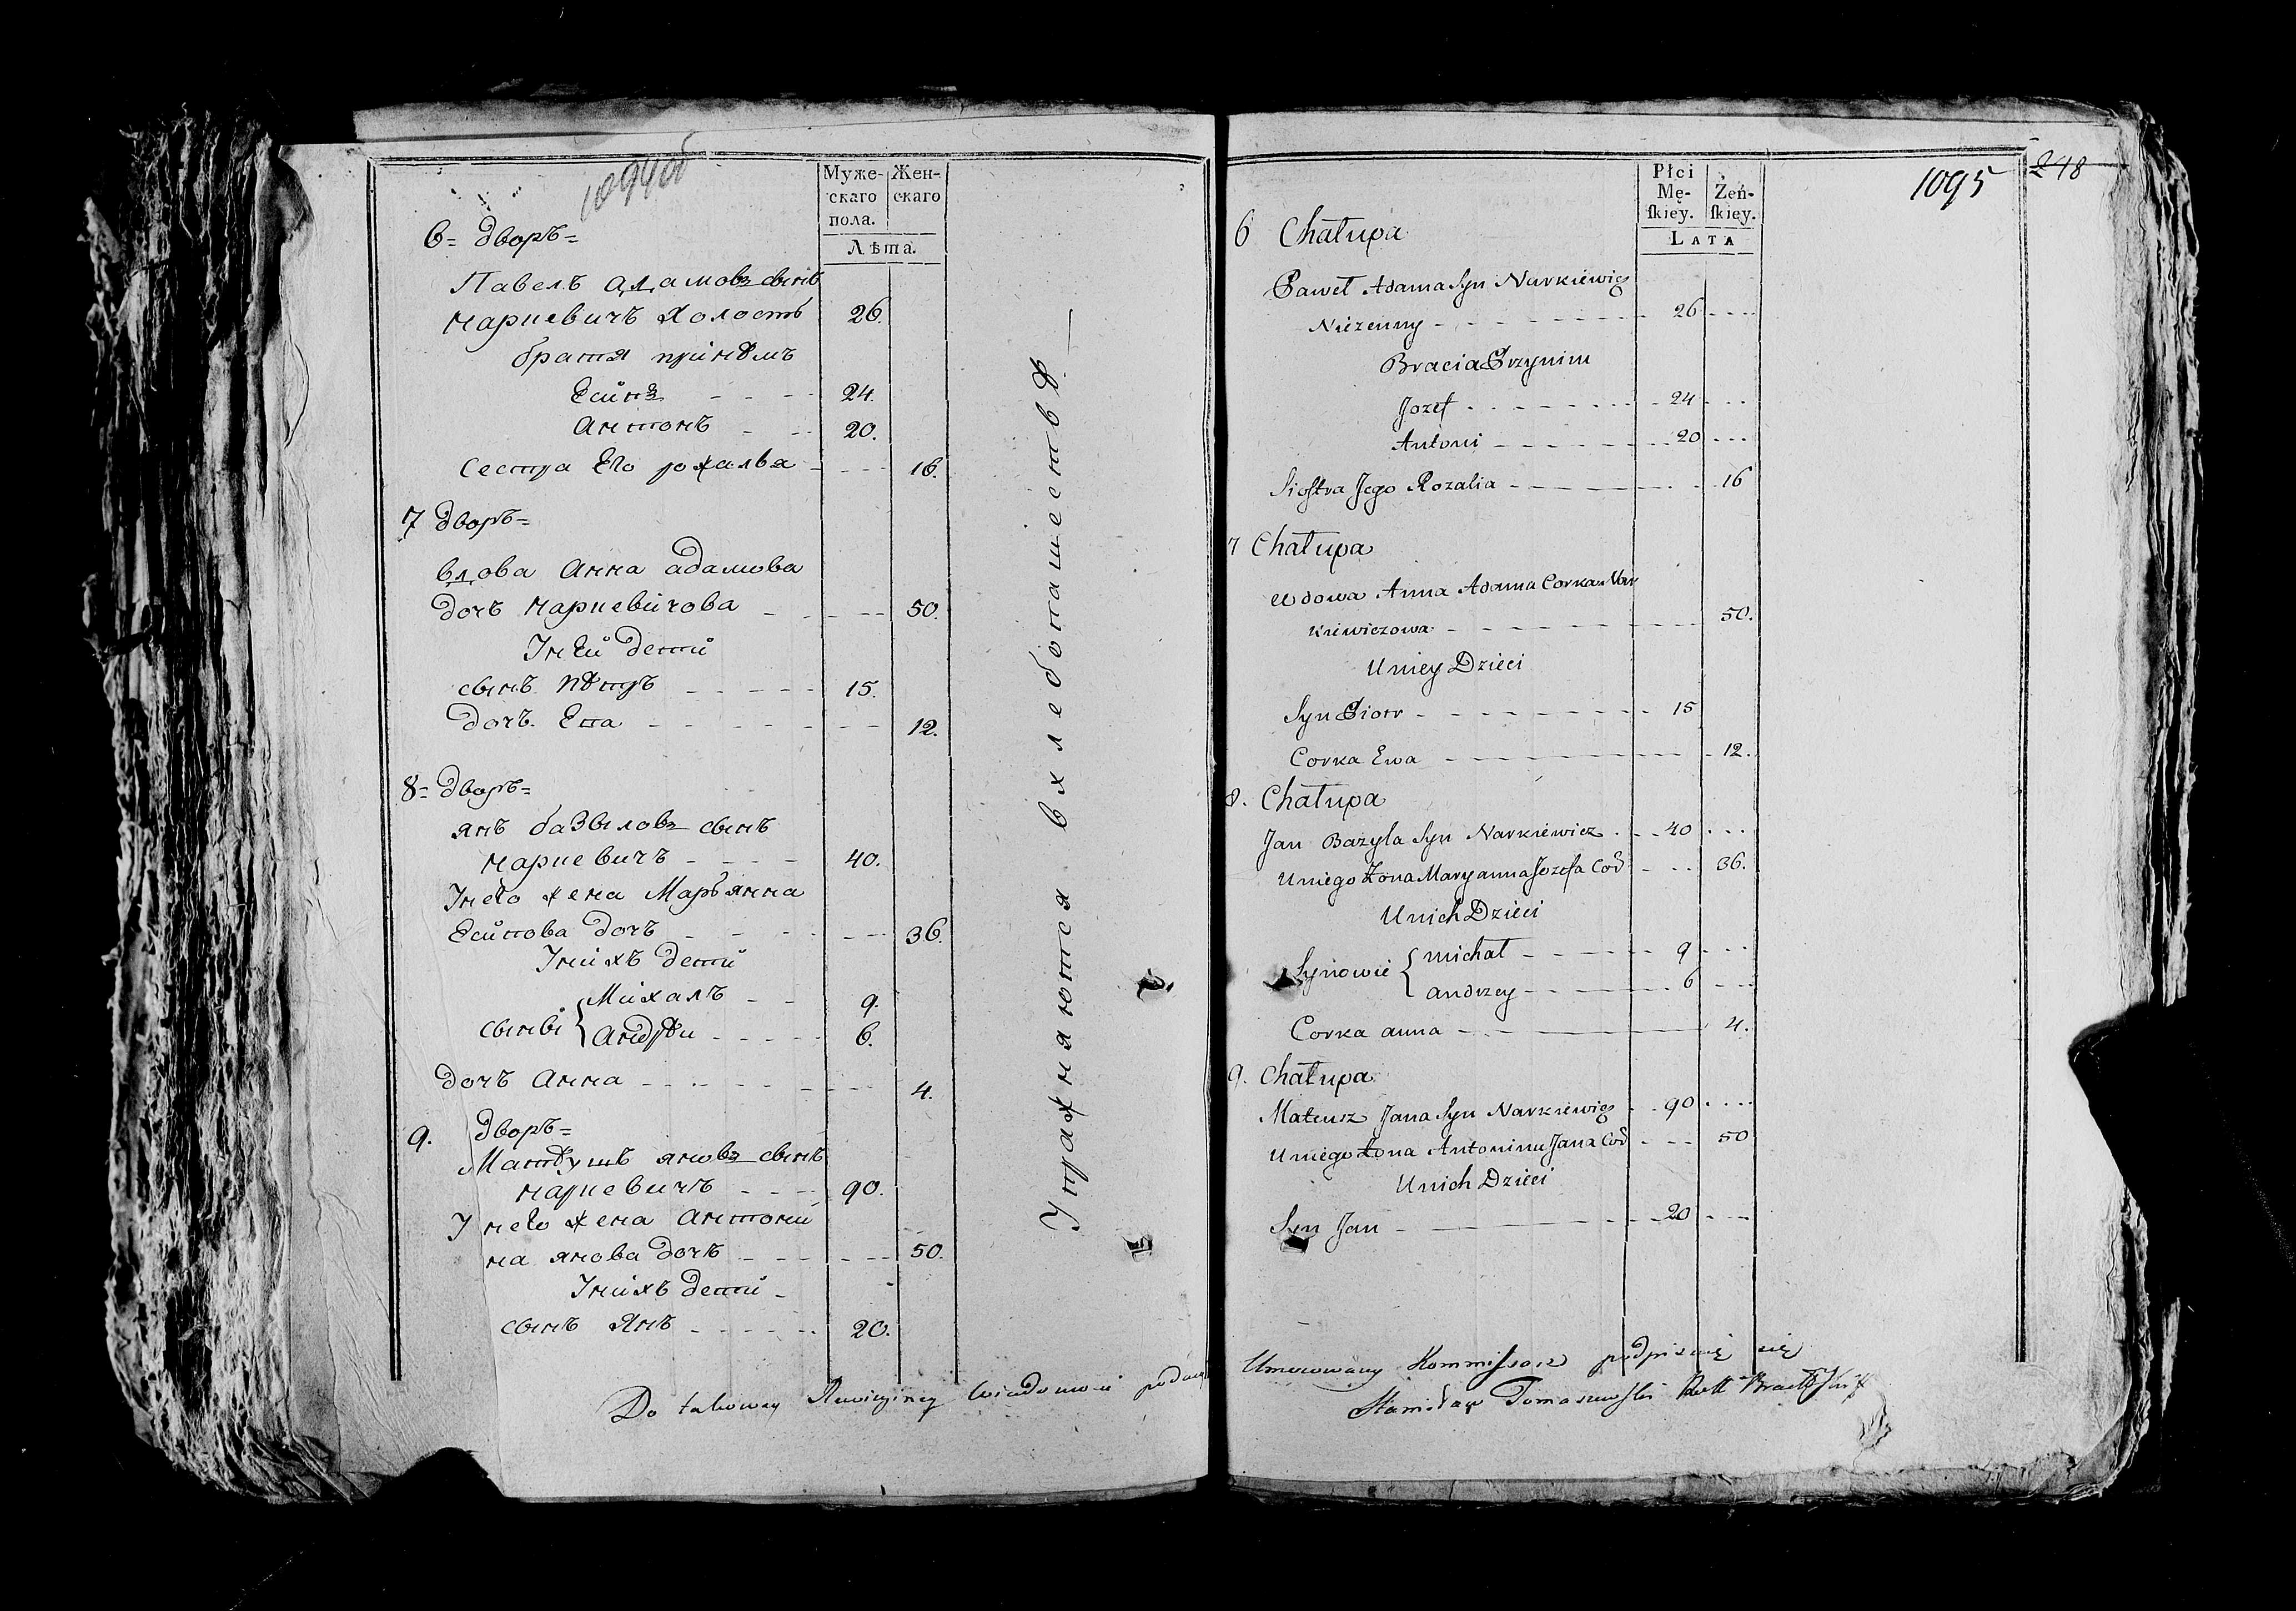 1094об
Муже- Жен-
скаго скаго
пола.
Лѣта.
6= дворъ=
Павелъ адамовъ сынъ
наркевичъ холостъ 26.
братя принѣмъ
Есипъ 24.
Антонъ 20.
Сестра Его рожалья 16.
7 дворъ=
вдова Анна адамова
дочь наркевичова 50.
Унеи дети
сынъ пѣтръ 15.
дочь Ева 12.
8= дворъ=
янъ базыловъ сынъ
наркевичъ 40.
Унего жена Марьянна
Есипова дочь 36.
Унихъ дети
сыны { Михалъ 9.
Андрѣи 6.
дочь Анна 4.
9. дворъ=
Матѣушъ яновъ сынъ
наркевичъ 90.
Унего жена Антони
на янова дочь 50.
Унихъ дети
сынъ Янъ 20.
Упражняются вхлебопашествѣ.
Do takowey Rewizyiney Wiadomosci podaney
1095
248
Płci
Mę- Żeń-
skiey. skiey.
LATA
6 Chałupa
Paweł Adama Syn Narkiewicz
Nieżenny 26
Bracia Przynim
Jozef 24
Antoni 20
Siostra Jego Rozalia 16
7 Chałupa
Wdowa Anna Adama Corka Nar
kiewiczowa 50.
Uniey Dzieci
Syn Piotr 15
Corka Ewa 12.
8. Chałupa
Jan Bazyla Syn Narkiewicz 40
Uniego Żona Maryanna Jozefa Cod 36.
Unich Dzieci
Synowie { Michał 9
Andrzey 6
Corka anna 4.
9. Chałupa
Mateusz Jana Syn Narkiewicz 90
Uniego żona Antonina Jana Cod 50
Unich Dzieci
Syn Jan 20
Umocowany Kommissarz podpisuię się
Stanisław Tomaszewski